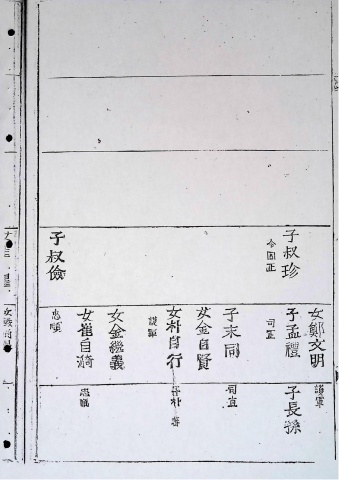 子叔珍
令同正
子叔儉
女鄭文明
護軍
子孟禮
司正
子長孫
子末同
司直
女金自賢
女朴自行
護軍
子朴
女金繼義
女崔自漪
忠順